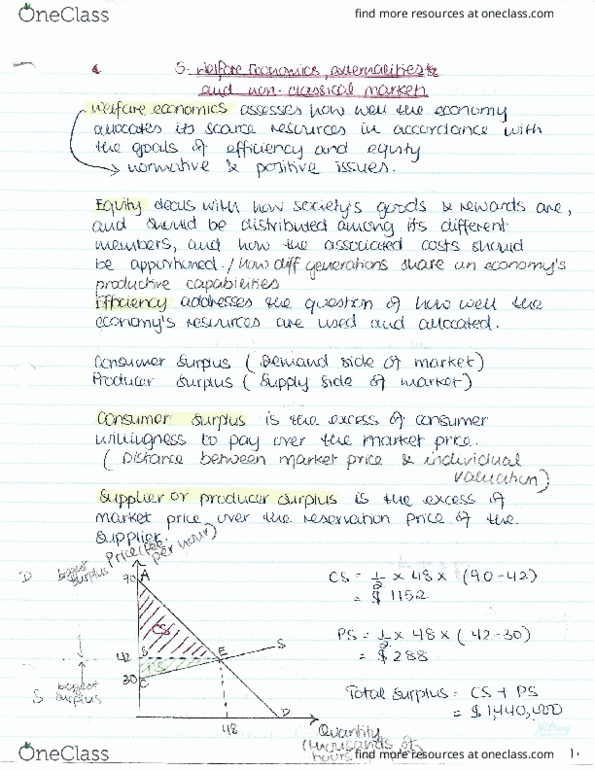 OneClass
find more resources at oneclass.com
5. Welfare Economics, externalities &
and non-classical market
Welfare economics assesses how well the economy
allocates its scarce resources in accordance with
the goals of efficiency and equity
→ normative & positive issues.
Equity deals with how society's goods & rewards are,
and should be distributed among its different
members, and how the associated costs should
be apportioned. / How diff generations share an economy's
productive capabilities
Efficiency addresses the question of how well the
economy's resources are used and allocated.
Consumer Surplus (Demand side of market)
Producer Surplus (Supply side of market)
Consumer surplus is the excess of consumer
willingness to pay over the market price.
(Distance between market price & individual
valuation)
Supplier or producer surplus is the excess of
market price over the reservation price of the
supplier.
Price (
per hour)
D biggest surplus
90 A
CS
42 B E S
PS
30 C
S biggest surplus
48 D
Quantity
(thousands of
hours
CS = 1/2 × 48 × (90-42)
= $ 1152
PS = 1/2 × 48 × (42-30)
= $ 288
Total Surplus = CS + PS
= $1,440,000
OneClass
find more resources at oneclass.com